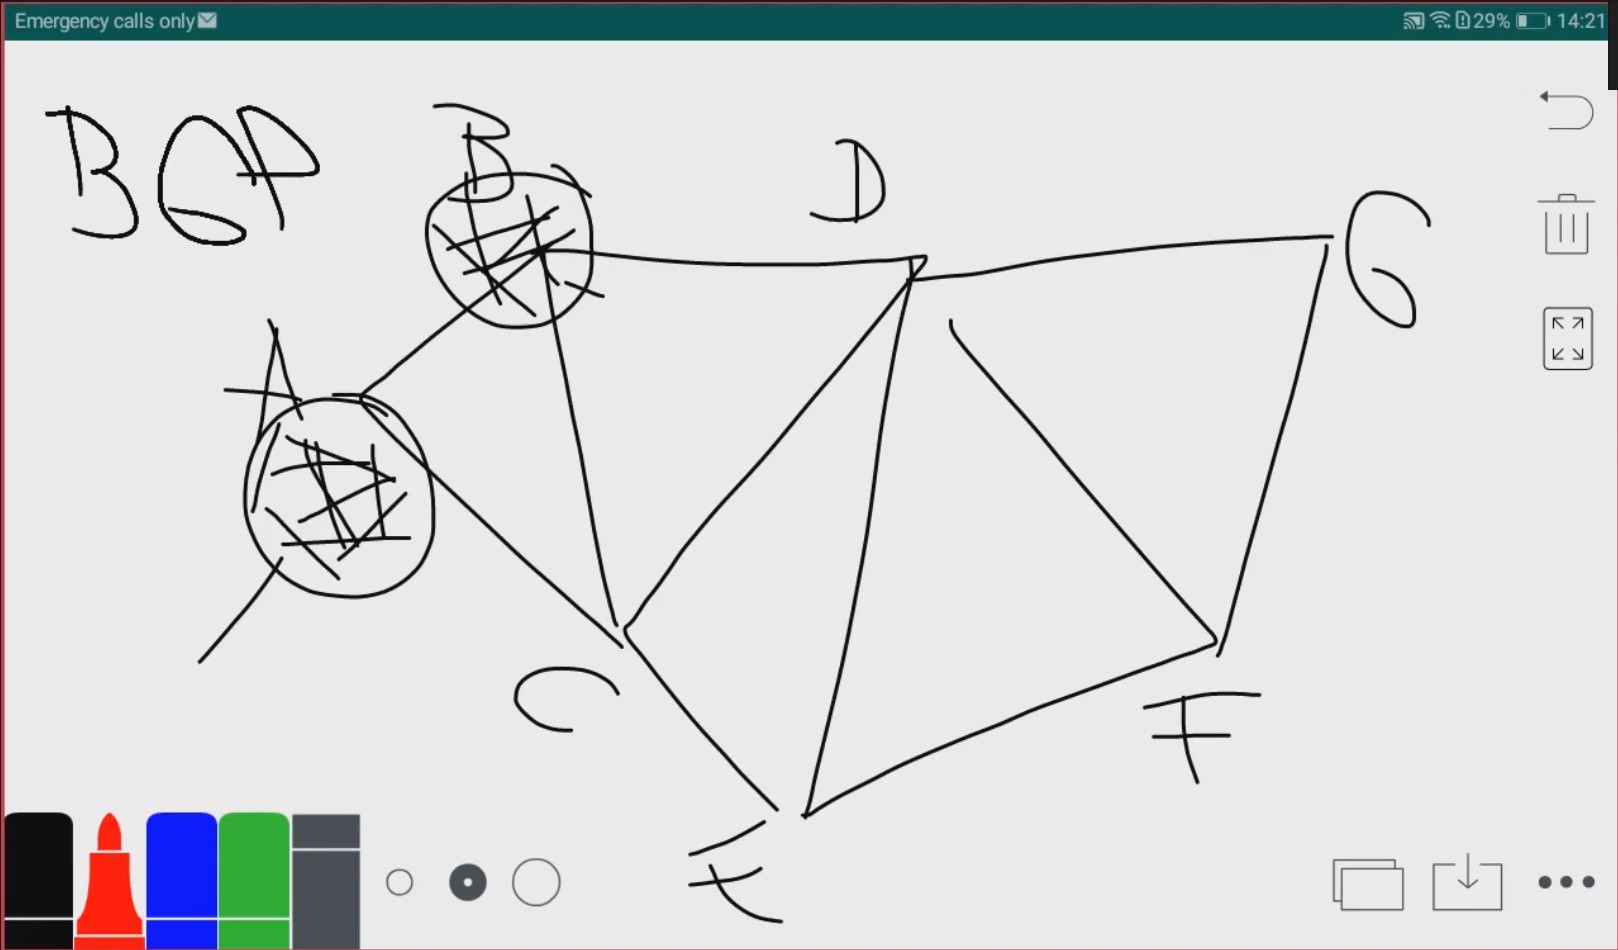 Emergency calls only 29% 14:21
BGP
B
D
G
A
C
F
E